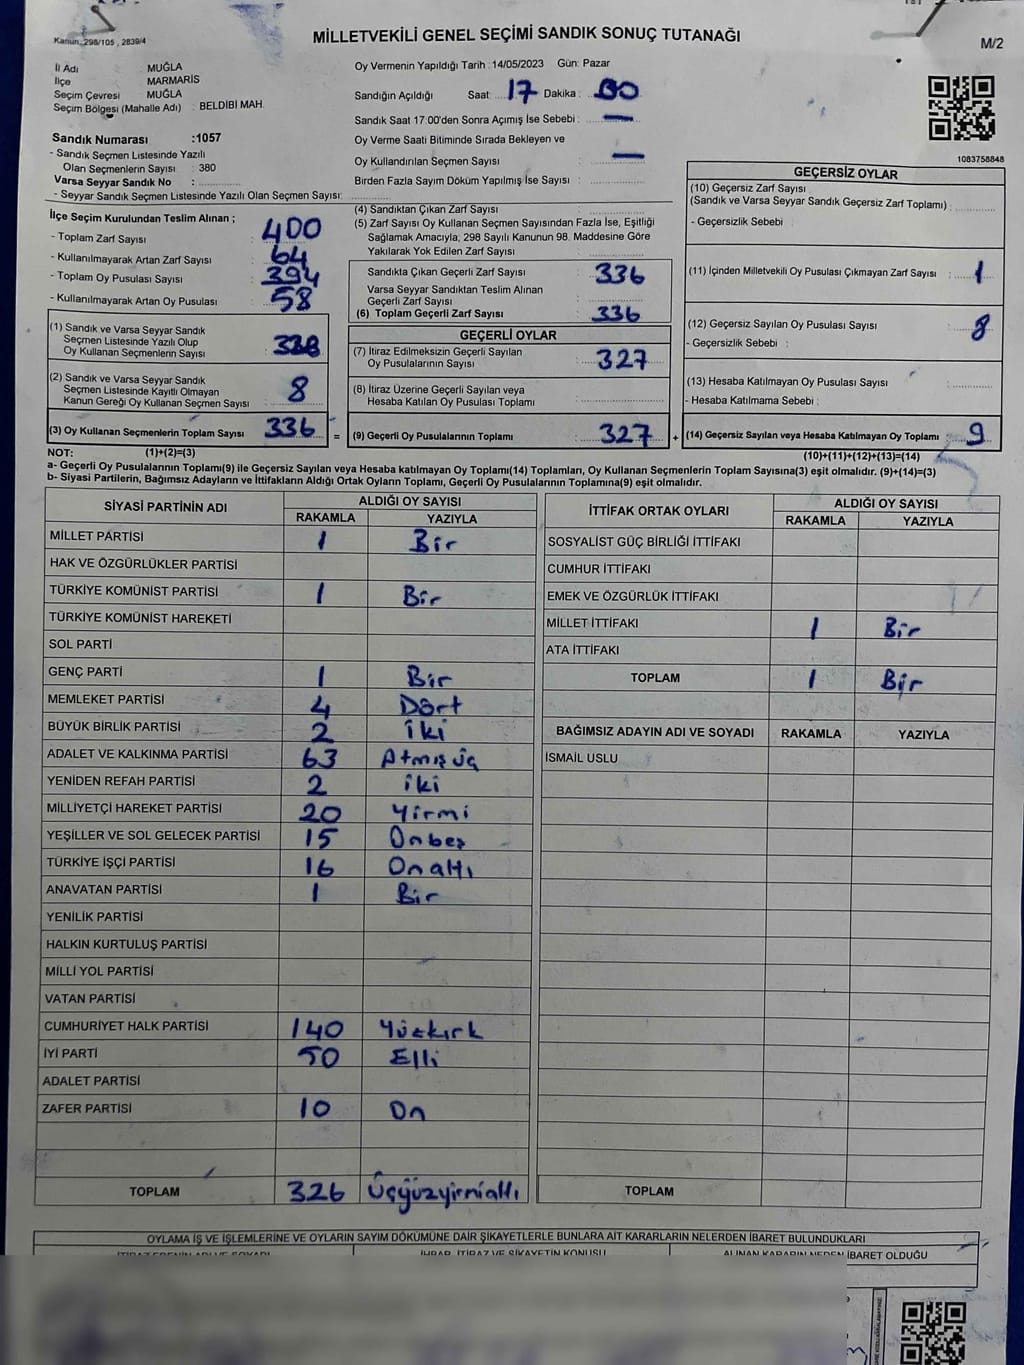 Kanun, 298/105 , 2839/4
MİLLETVEKİLİ GENEL SEÇİMİ SANDIK SONUÇ TUTANAĞI
M/2
İl Adı MUĞLA
İlçe MARMARİS
Seçim Çevresi MUĞLA
Seçim Bölgesi (Mahalle Adı) : BELDİBİ MAH.
Oy Vermenin Yapıldığı Tarih : 14/05/2023 Gün: Pazar
Sandığın Açıldığı Saat: 17 Dakika: 00
Sandık Saat 17:00'den Sonra Açımış İse Sebebi : —
Oy Verme Saati Bitiminde Sırada Bekleyen ve
Oy Kullandırılan Seçmen Sayısı : —
Birden Fazla Sayım Döküm Yapılmış İse Sayısı :
1083758848
Sandık Numarası :1057
- Sandık Seçmen Listesinde Yazılı
Olan Seçmenlerin Sayısı : 380
Varsa Seyyar Sandık No :
- Seyyar Sandık Seçmen Listesinde Yazılı Olan Seçmen Sayısı:
İlçe Seçim Kurulundan Teslim Alınan ;
- Toplam Zarf Sayısı : 400
- Kullanılmayarak Artan Zarf Sayısı : 64
- Toplam Oy Pusulası Sayısı : 394
- Kullanılmayarak Artan Oy Pusulası : 58
(1) Sandık ve Varsa Seyyar Sandık
Seçmen Listesinde Yazılı Olup
Oy Kullanan Seçmenlerin Sayısı : 328
(2) Sandık ve Varsa Seyyar Sandık
Seçmen Listesinde Kayıtlı Olmayan
Kanun Gereği Oy Kullanan Seçmen Sayısı : 8
(3) Oy Kullanan Seçmenlerin Toplam Sayısı 336
(4) Sandıktan Çıkan Zarf Sayısı :
(5) Zarf Sayısı Oy Kullanan Seçmen Sayısından Fazla İse, Eşitliği
Sağlamak Amacıyla; 298 Sayılı Kanunun 98. Maddesine Göre
Yakılarak Yok Edilen Zarf Sayısı :
Sandıkta Çıkan Geçerli Zarf Sayısı : 336
Varsa Seyyar Sandıktan Teslim Alınan
Geçerli Zarf Sayısı :
(6) Toplam Geçerli Zarf Sayısı : 336
GEÇERLİ OYLAR
(7) İtiraz Edilmeksizin Geçerli Sayılan
Oy Pusulalarının Sayısı : 327
(8) İtiraz Üzerine Geçerli Sayılan veya
Hesaba Katılan Oy Pusulası Toplamı :
= (9) Geçerli Oy Pusulalarının Toplamı : 327 +
GEÇERSİZ OYLAR
(10) Geçersiz Zarf Sayısı
(Sandık ve Varsa Seyyar Sandık Geçersiz Zarf Toplamı) :
- Geçersizlik Sebebi :
(11) İçinden Milletvekili Oy Pusulası Çıkmayan Zarf Sayısı : 1
(12) Geçersiz Sayılan Oy Pusulası Sayısı : 8
- Geçersizlik Sebebi :
(13) Hesaba Katılmayan Oy Pusulası Sayısı :
- Hesaba Katılmama Sebebi :
(14) Geçersiz Sayılan veya Hesaba Katılmayan Oy Toplamı 9
NOT: (1)+(2)=(3)
(10)+(11)+(12)+(13)=(14)
a- Geçerli Oy Pusulalarının Toplamı(9) ile Geçersiz Sayılan veya Hesaba katılmayan Oy Toplamı(14) Toplamları, Oy Kullanan Seçmenlerin Toplam Sayısına(3) eşit olmalıdır. (9)+(14)=(3)
b- Siyasi Partilerin, Bağımsız Adayların ve İttifakların Aldığı Ortak Oyların Toplamı, Geçerli Oy Pusulalarının Toplamına(9) eşit olmalıdır.
SİYASİ PARTİNİN ADI ALDIĞI OY SAYISI
RAKAMLA YAZIYLA
MİLLET PARTİSİ 1 Bir
HAK VE ÖZGÜRLÜKLER PARTİSİ
TÜRKİYE KOMÜNİST PARTİSİ 1 Bir
TÜRKİYE KOMÜNİST HAREKETİ
SOL PARTİ
GENÇ PARTİ 1 Bir
MEMLEKET PARTİSİ 4 Dört
BÜYÜK BİRLİK PARTİSİ 2 iki
ADALET VE KALKINMA PARTİSİ 63 Atmışüç
YENİDEN REFAH PARTİSİ 2 iki
MİLLİYETÇİ HAREKET PARTİSİ 20 Yirmi
YEŞİLLER VE SOL GELECEK PARTİSİ 15 Onbeş
TÜRKİYE İŞÇİ PARTİSİ 16 Onaltı
ANAVATAN PARTİSİ 1 Bir
YENİLİK PARTİSİ
HALKIN KURTULUŞ PARTİSİ
MİLLİ YOL PARTİSİ
VATAN PARTİSİ
CUMHURİYET HALK PARTİSİ 140 Yüzkırk
İYİ PARTİ 50 Elli
ADALET PARTİSİ
ZAFER PARTİSİ 10 On
TOPLAM 326 Üçyüzyirmialtı
İTTİFAK ORTAK OYLARI ALDIĞI OY SAYISI
RAKAMLA YAZIYLA
SOSYALİST GÜÇ BİRLİĞİ İTTİFAKI
CUMHUR İTTİFAKI
EMEK VE ÖZGÜRLÜK İTTİFAKI
MİLLET İTTİFAKI 1 Bir
ATA İTTİFAKI
TOPLAM 1 Bir
BAĞIMSIZ ADAYIN ADI VE SOYADI RAKAMLA YAZIYLA
İSMAİL USLU
TOPLAM
OYLAMA İŞ VE İŞLEMLERİNE VE OYLARIN SAYIM DÖKÜMÜNE DAİR ŞİKAYETLERLE BUNLARA AİT KARARLARIN NELERDEN İBARET BULUNDUKLARI
İTİRAZ EDENİN ADI VE SOYADI İHBAR, İTİRAZ VE ŞİKAYETİN KONUSU ALINAN KARARIN NEDEN İBARET OLDUĞU